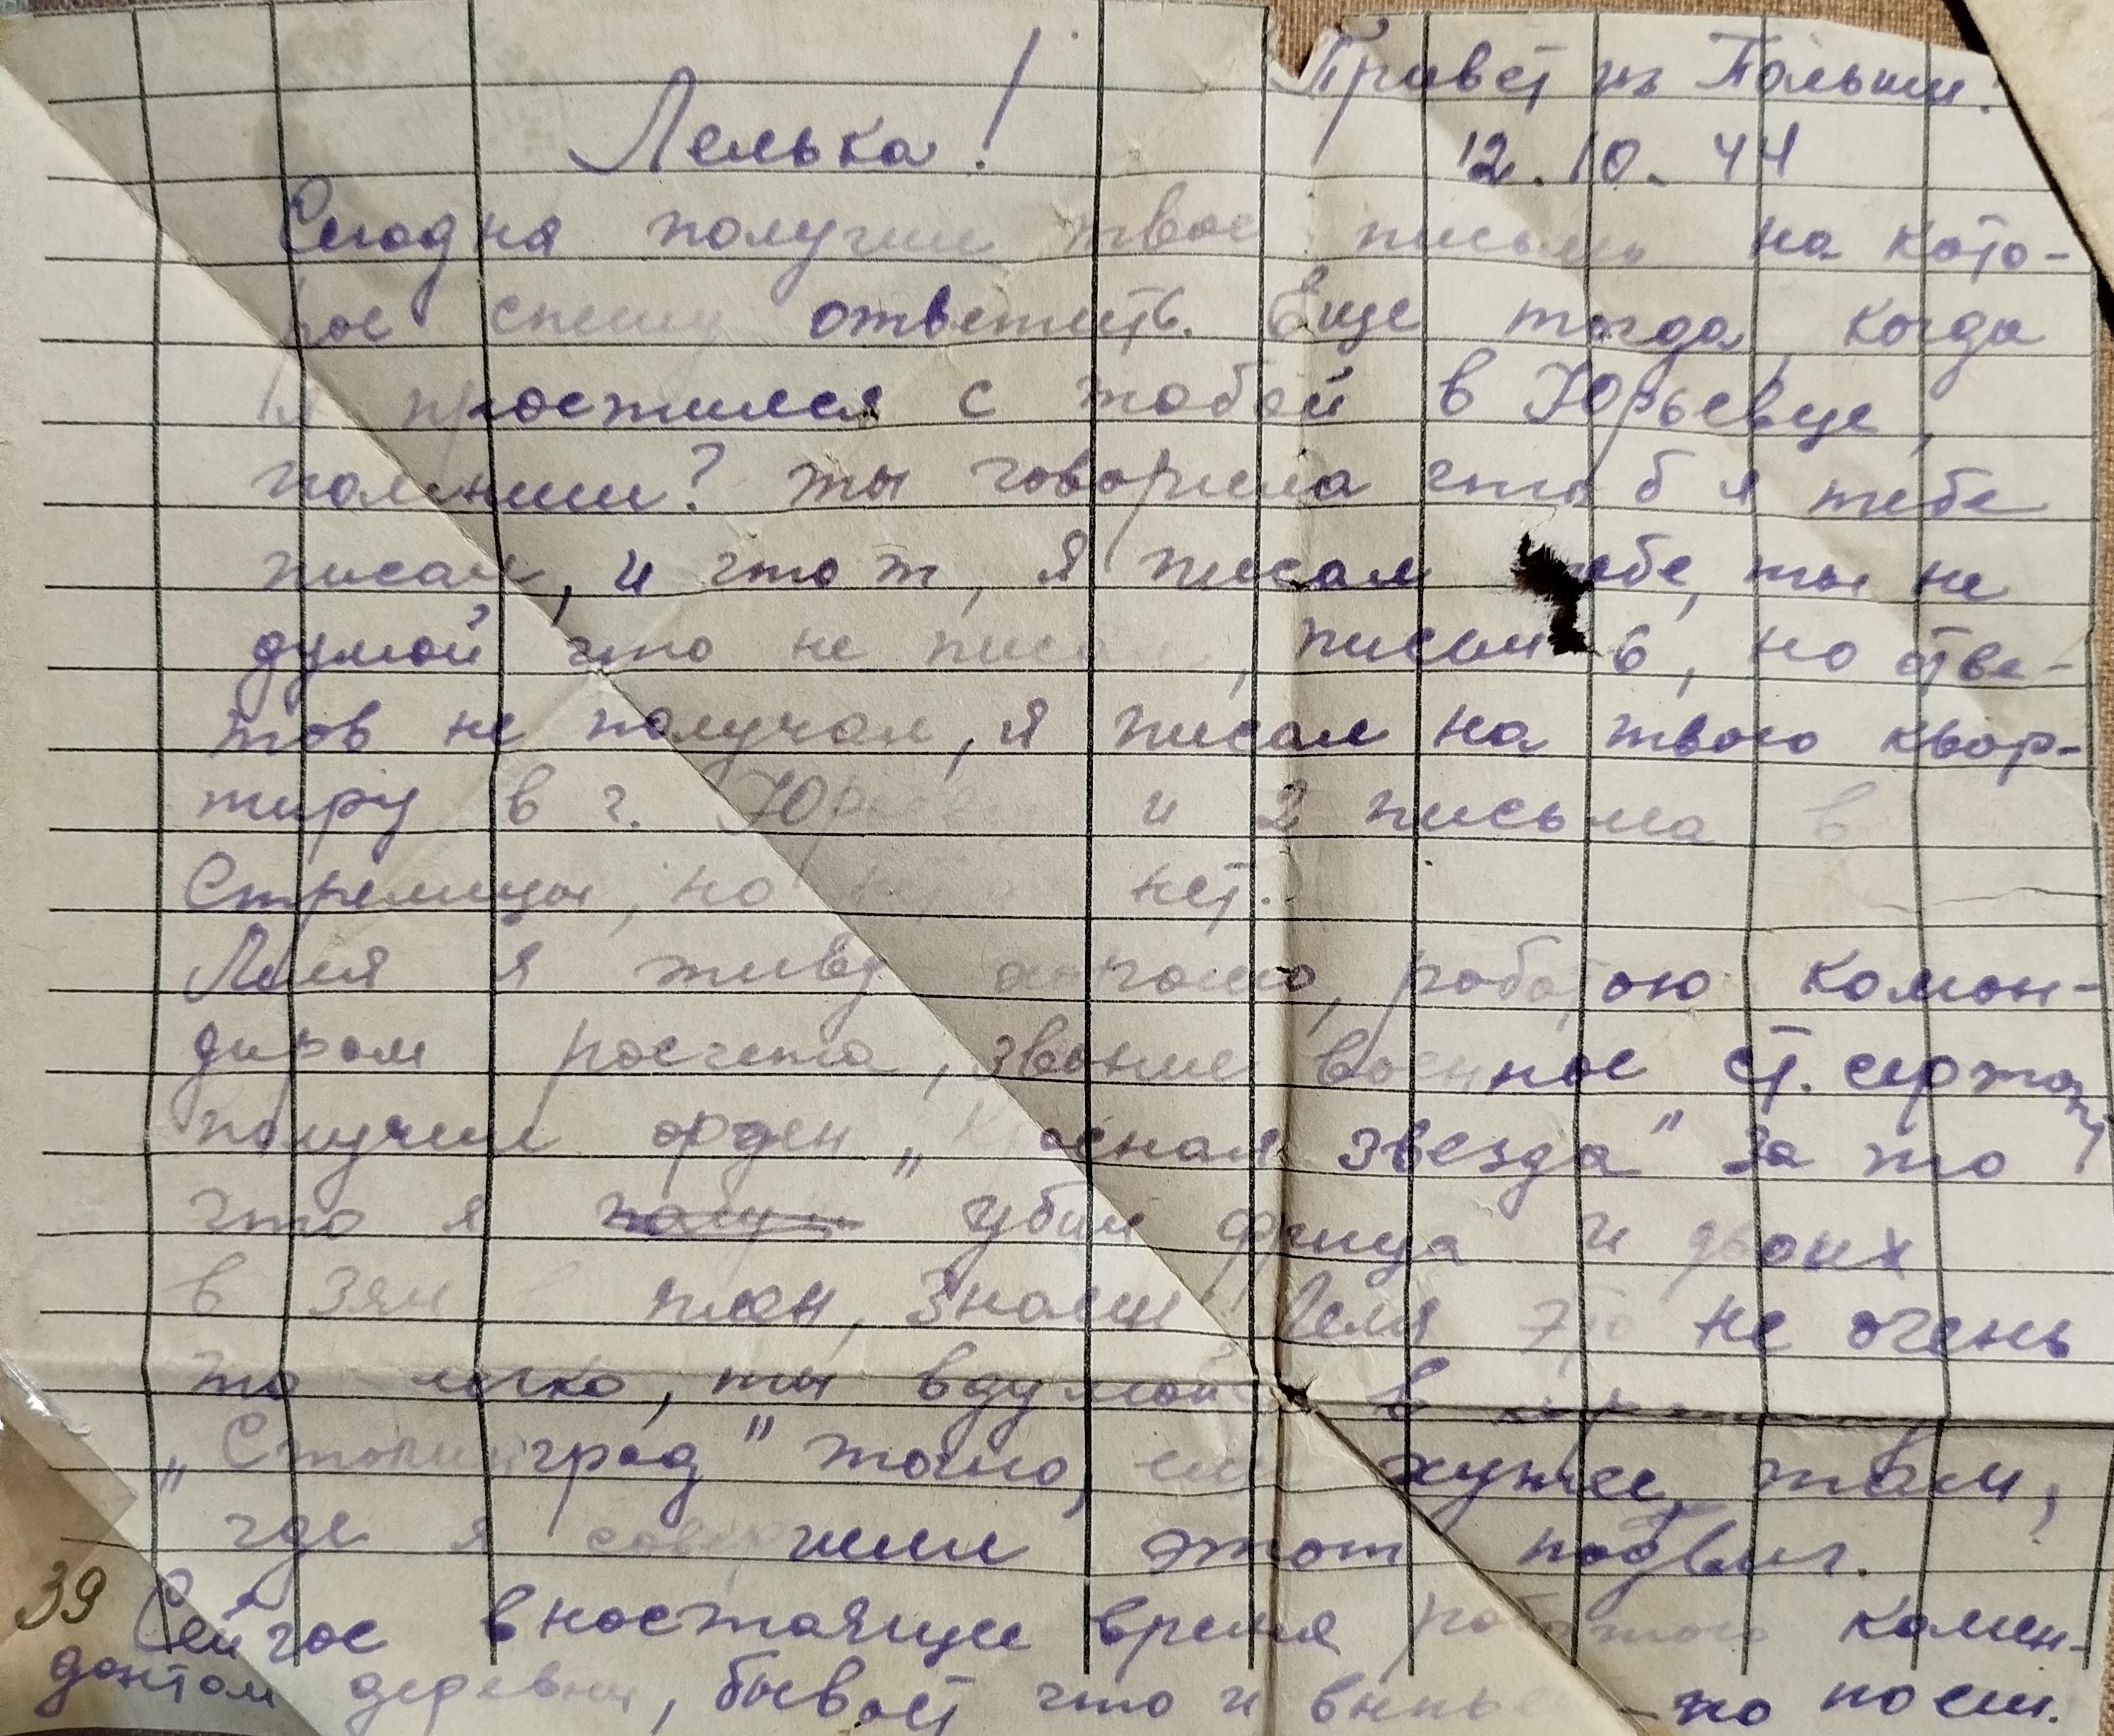 Привет из Польши!
Лелька!
12.10.44
Сегодня получил твое письмо на кото-
рое спешу ответить. Еще тогда, когда
я простился с тобой в Юрьевце,
помниш? ты говорила что б я тебе
писал, и что ж, я писал тебе, ты не
думой что не писал, писем 6, но отве-
тов не получал, я писал на твою квар-
тиру в г. и 2 письма в
но нет.
Леля я живу работою коман-
диром росчета, звание военное ст. сержант
получил орден „Красная звезда" за то
что я убил фрица и двоих
в взял плен, знаеш Леля это не очень
то легко, ты вдумойся в
„Сталинград" точно, еще хужее, там,
где я совершил этот подвиг.
39
Сейчас внастоящее время работаю комен-
дантом деревни, бывает что и